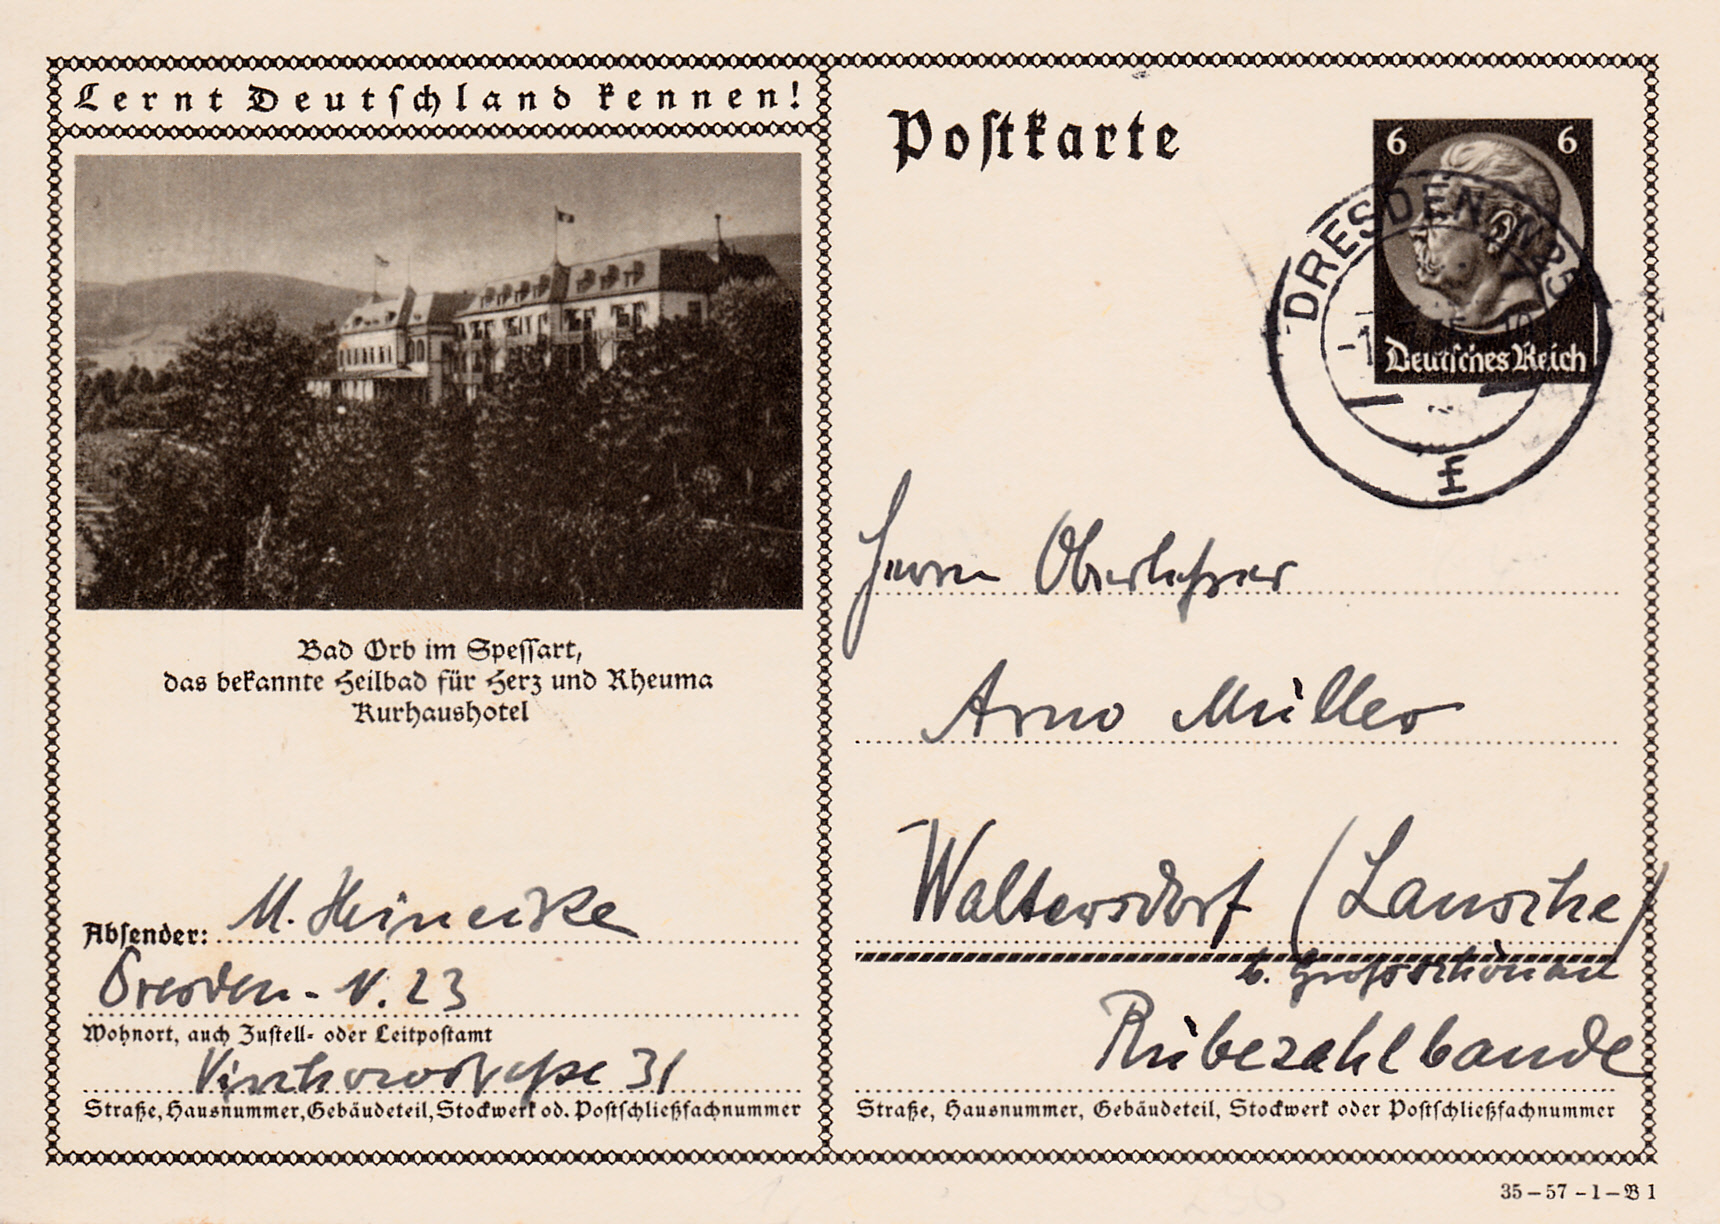 Lernt Deutschland kennen!
Bad Orb im Spessart,
das bekannte Heilbad für Herz und Rheuma
Kurhaushotel
Absender: M. Heinecke
Dresden-N. 23
Wohnort, auch Zustell- oder Leitpostamt
Virchowstraße 31
Straße, Hausnummer, Gebäudeteil, Stockwerk od. Postschließfachnummer
Postkarte
6 6
Deutsches Reich
DRESDEN
f
Herrn Oberlehrer
Arno Müller
Waltersdorf (Lausche)
b. Grossschönau
Rübezahlbaude
Straße, Hausnummer, Gebäudeteil, Stockwerk oder Postschließfachnummer
35–57–1–B 1